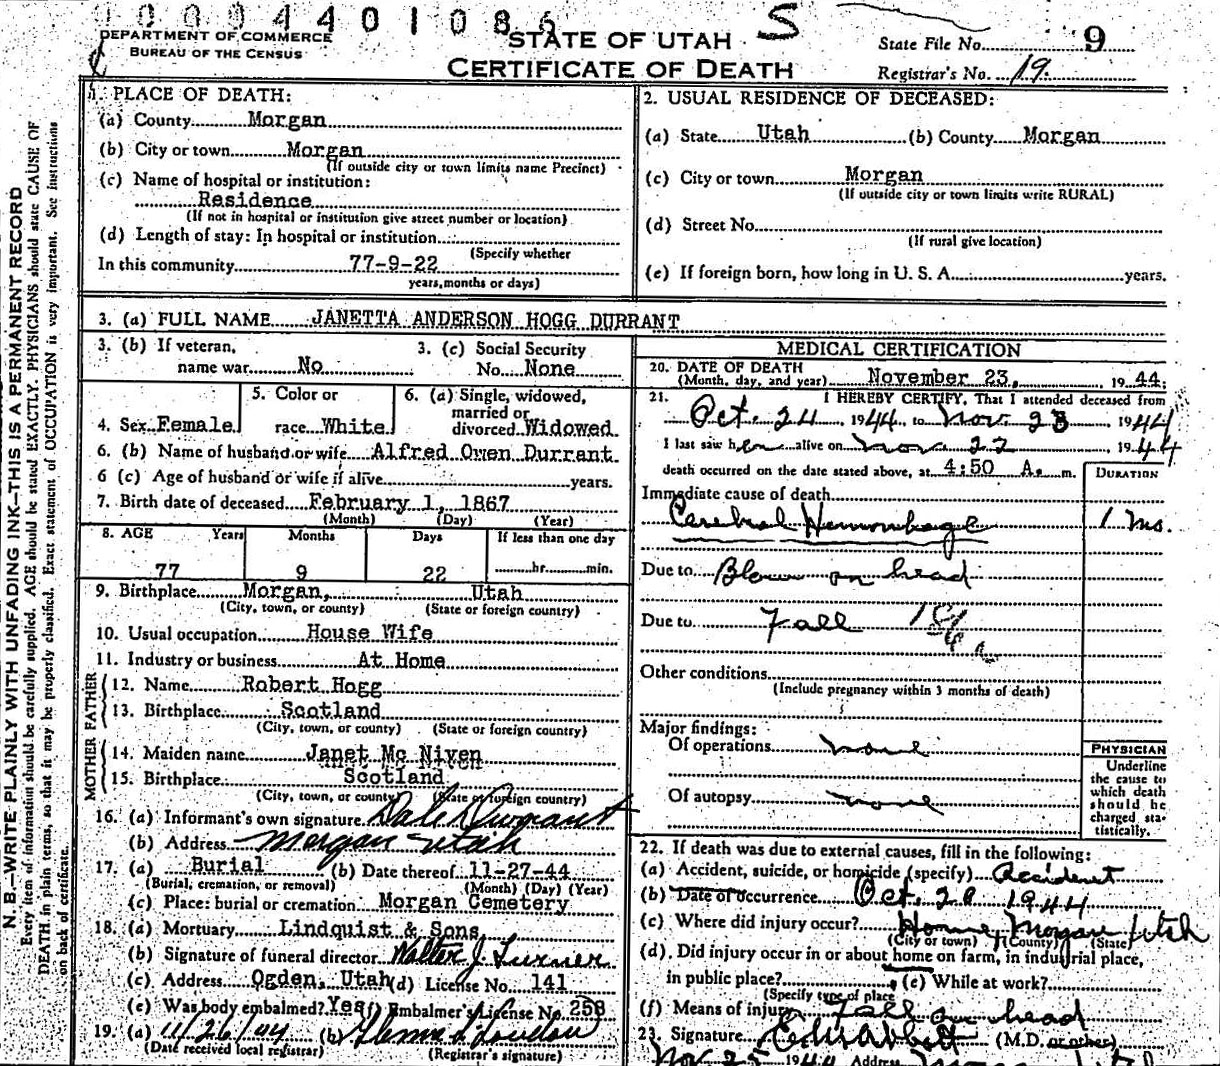 DEPARTMENT OF COMMERCE
BUREAU OF THE CENSUS
STATE OF UTAH
CERTIFICATE OF DEATH
S
State File No. 9
Registrar's No. 19.
N. B.—WRITE PLAINLY WITH UNFADING INK—THIS IS A PERMANENT RECORD
Every item of information should be carefully supplied. AGE should be stated EXACTLY. PHYSICIANS should state CAUSE OF
DEATH in plain terms, so that it may be properly classified. Exact statement of OCCUPATION is very important. See instructions
on back of certificate.
1. PLACE OF DEATH:
(a) County Morgan
(b) City or town Morgan
(If outside city or town limits name Precinct)
(c) Name of hospital or institution:
Residence
(If not in hospital or institution give street number or location)
(d) Length of stay: In hospital or institution
(Specify whether
In this community 77-9-22
years, months or days)
2. USUAL RESIDENCE OF DECEASED:
(a) State Utah (b) County Morgan
(c) City or town Morgan
(If outside city or town limits write RURAL)
(d) Street No.
(If rural give location)
(e) If foreign born, how long in U. S. A. years.
3. (a) FULL NAME JANETTA ANDERSON HOGG DURRANT
3. (b) If veteran, name war No
3. (c) Social Security No. None
4. Sex Female
5. Color or race White
6. (a) Single, widowed, married or divorced Widowed
6. (b) Name of husband or wife Alfred Owen Durrant
6 (c) Age of husband or wife if alive years.
7. Birth date of deceased February 1, 1867
(Month) (Day) (Year)
8. AGE Years Months Days If less than one day
77 9 22 hr. min.
9. Birthplace Morgan, Utah
(City, town, or county) (State or foreign country)
10. Usual occupation House Wife
11. Industry or business At Home
FATHER
12. Name Robert Hogg
13. Birthplace Scotland
(City, town, or county) (State or foreign country)
MOTHER
14. Maiden name Janet Mc Niven
15. Birthplace Scotland
(City, town, or county) (State or foreign country)
16. (a) Informant's own signature Dale Durrant
(b) Address Morgan Utah
17. (a) Burial (b) Date thereof 11-27-44
(Burial, cremation, or removal) (Month) (Day) (Year)
(c) Place: burial or cremation Morgan Cemetery
18. (a) Mortuary Lindquist & Sons
(b) Signature of funeral director Walter J. Turner
(c) Address Ogden, Utah (d) License No. 141
(e) Was body embalmed? Yes (f) Embalmer's License No. 258
19. (a) 11/26/44 (b)
(Date received local registrar) (Registrar's signature)
MEDICAL CERTIFICATION
20. DATE OF DEATH
(Month, day, and year) November 23, 1944.
21. I HEREBY CERTIFY, That I attended deceased from
Oct. 24 1944, to Nov. 23 1944
I last saw her alive on Nov 22 1944
death occurred on the date stated above, at 4:50 A. m.
DURATION
Immediate cause of death
Cerebral Hemorrhage 1 mo.
Due to Blow on head
Due to Fall
Other conditions
(Include pregnancy within 3 months of death)
Major findings:
Of operations none
Of autopsy none
PHYSICIAN
Underline
the cause to
which death
should be
charged sta-
tistically.
22. If death was due to external causes, fill in the following:
(a) Accident, suicide, or homicide (specify) Accident
(b) Date of occurrence Oct. 1944
(c) Where did injury occur? Home, Morgan Utah
(City or town) (County) (State)
(d) Did injury occur in or about home on farm, in industrial place,
in public place? (e) While at work?
(Specify type of place
(f) Means of injury Fall on head
23. Signature (M.D. or other)
Nov 25 1944 Address